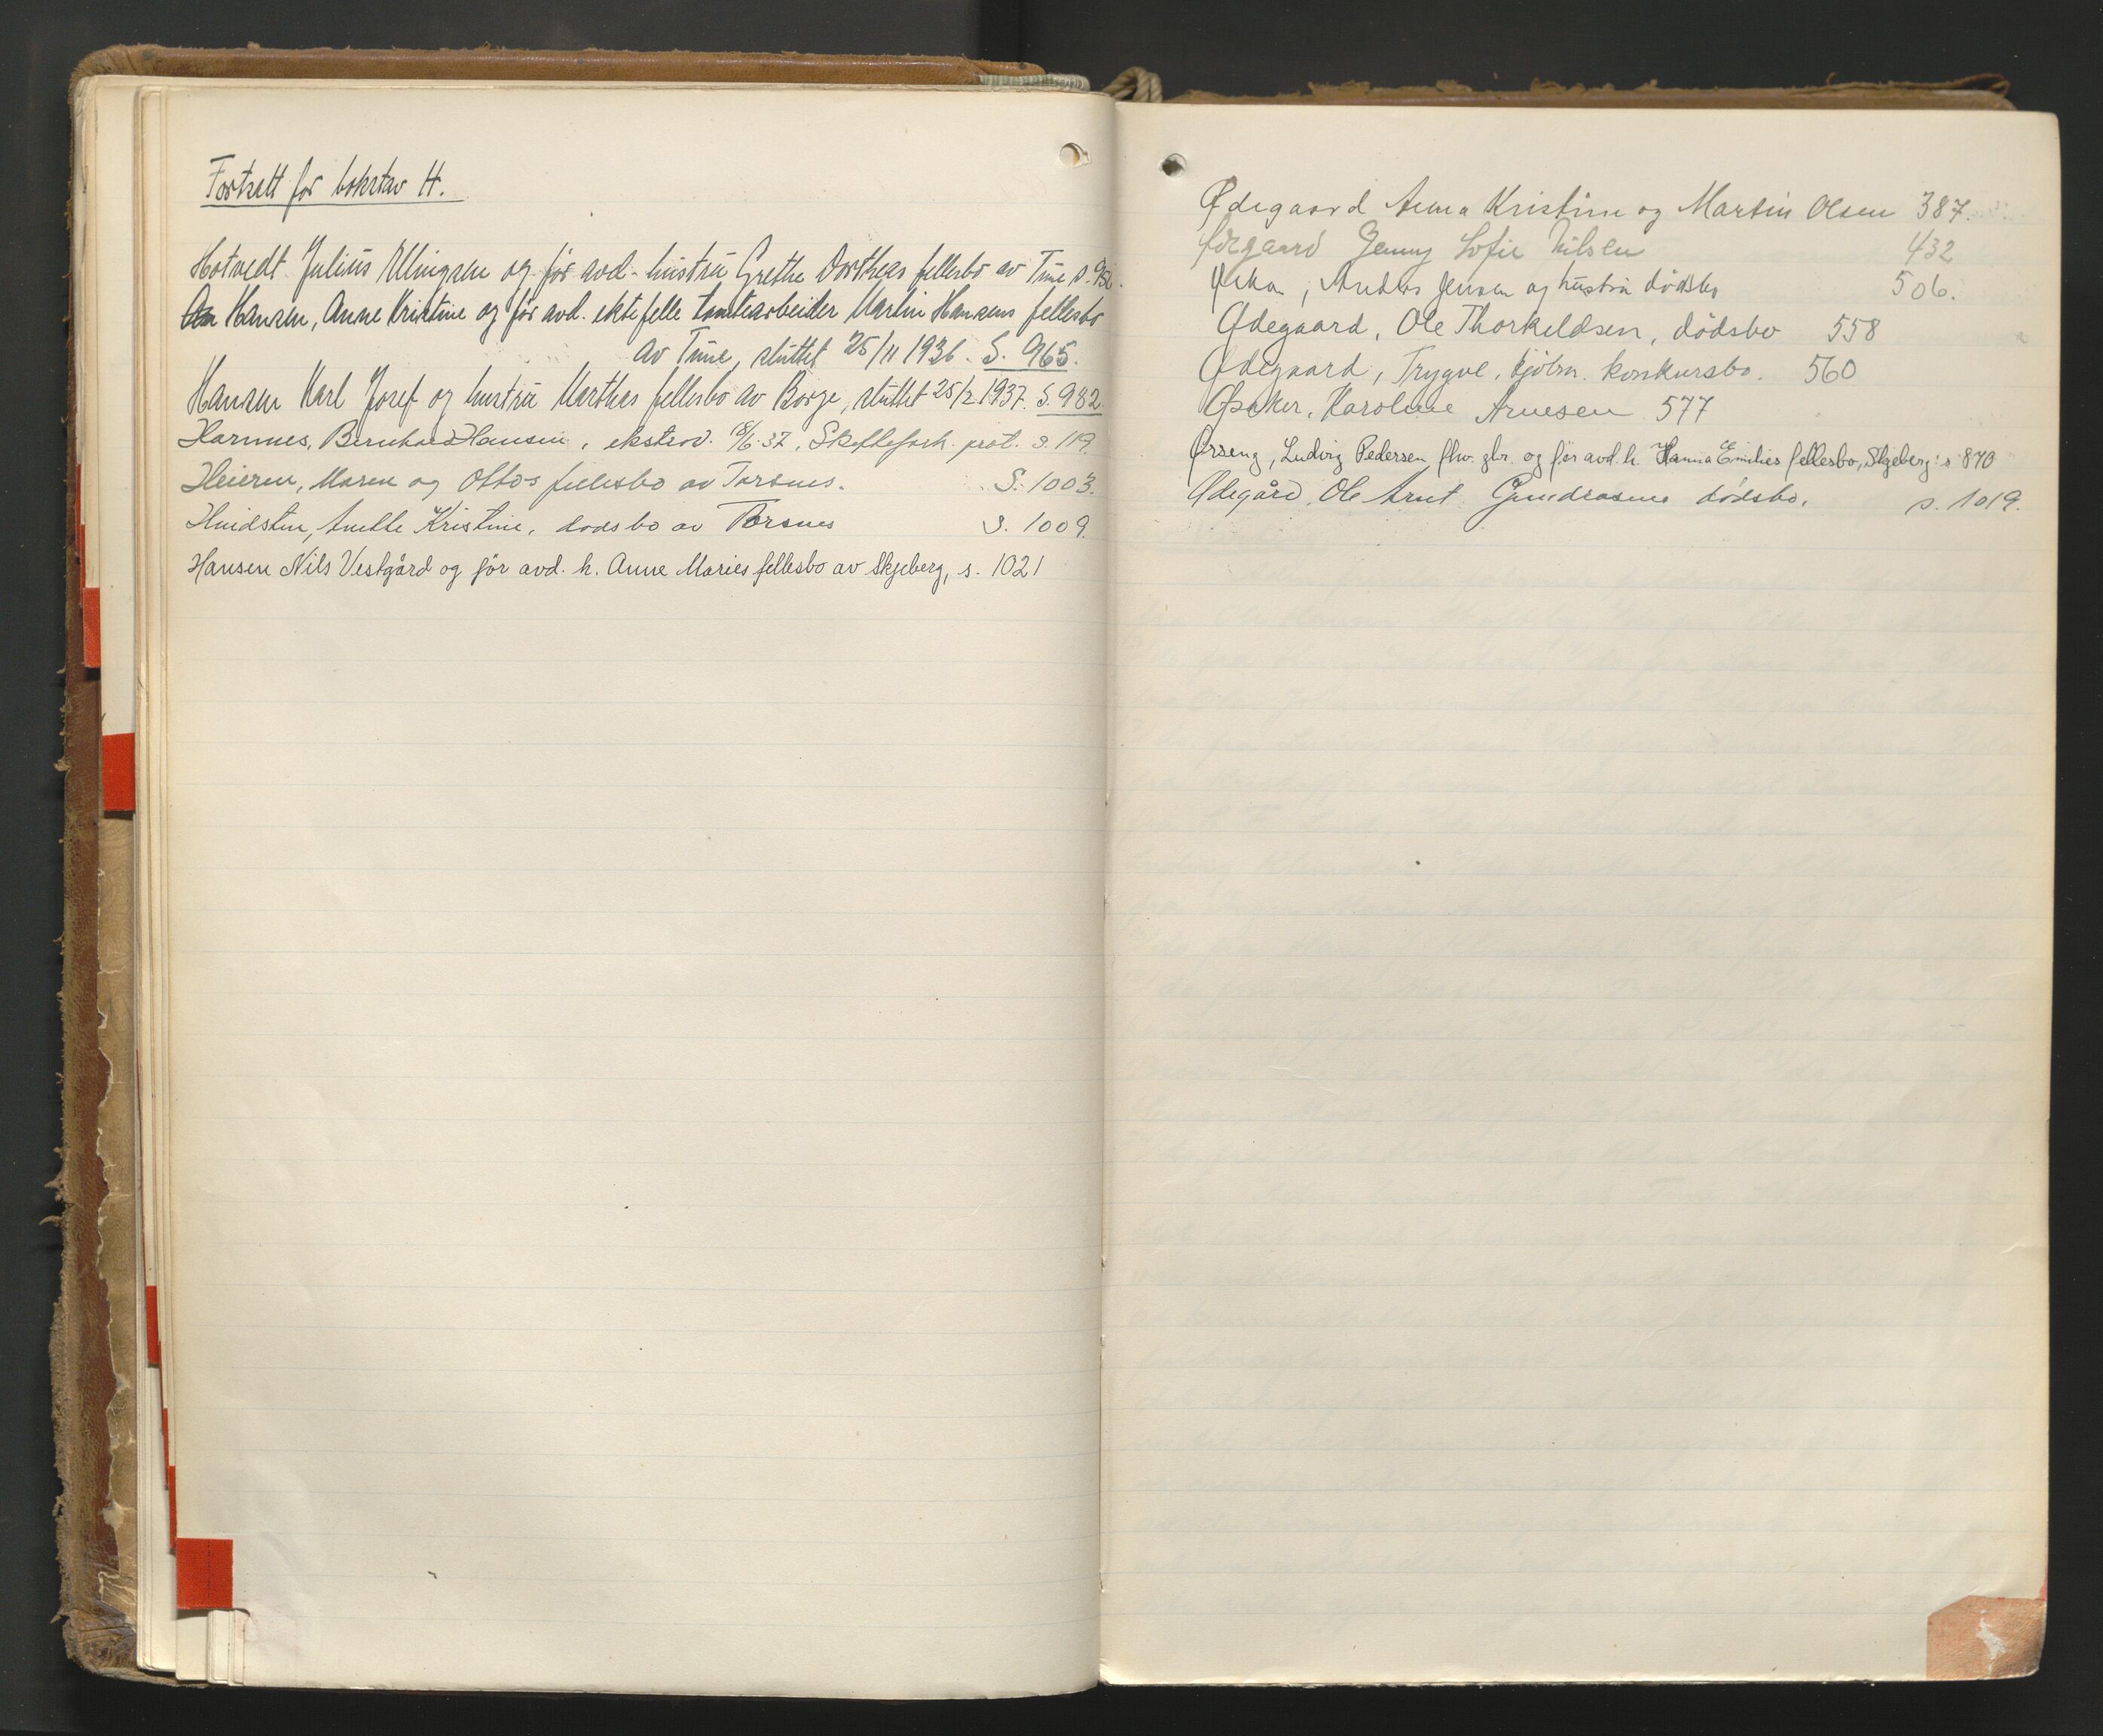 Fortsatt for bokstav H.
Hotvedt Julius Ellingsen og før avd. hustru Grethe Dortheas fellesbo av Tune s. 950.
Hansen, Anne Kristine og før avd. ektefelle tomtearbeider Martin Hansens fellesbo
av Tune, sluttet 25/11 1936. S. 965.
Hansen Karl Josef og hustru Marthas fellesbo av Borge, sluttet 25/2 1937. S. 982.
Harnnes, Bernhard Hansen, ekstrod. 18/6-37, Skiftefork. prot. s. 119.
Heieren, Maren og Ottos fellesbo av Torsnes. S. 1003.
Hvidsten, Anette Kristine, dødsbo av Torsnes s. 1009.
Hansen Nils Vestgård og før avd. h. Anne Maries fellesbo av Skjeberg, s. 1021
Ødegaard Anna Kristine og Martin Olsen 387.
Ødegaard Jenny Sofie Nilsen 432
Anders Jensen og hustru dødsbo 506.
Ødegaard, Ole Thorkeldsen, dødsbo 558
Ødegaard, Trygve, kjøbm. konkursbo. 560
Øsaker, Karoline Arnesen 577
Ørseng, Ludvig Pedersen fhv. gbr. og før avd. h. Hanna Emilies fellesbo, Skjeberg: s 870
Ødegård, Ole Arnt Gundrosens dødsbo. s. 1019.